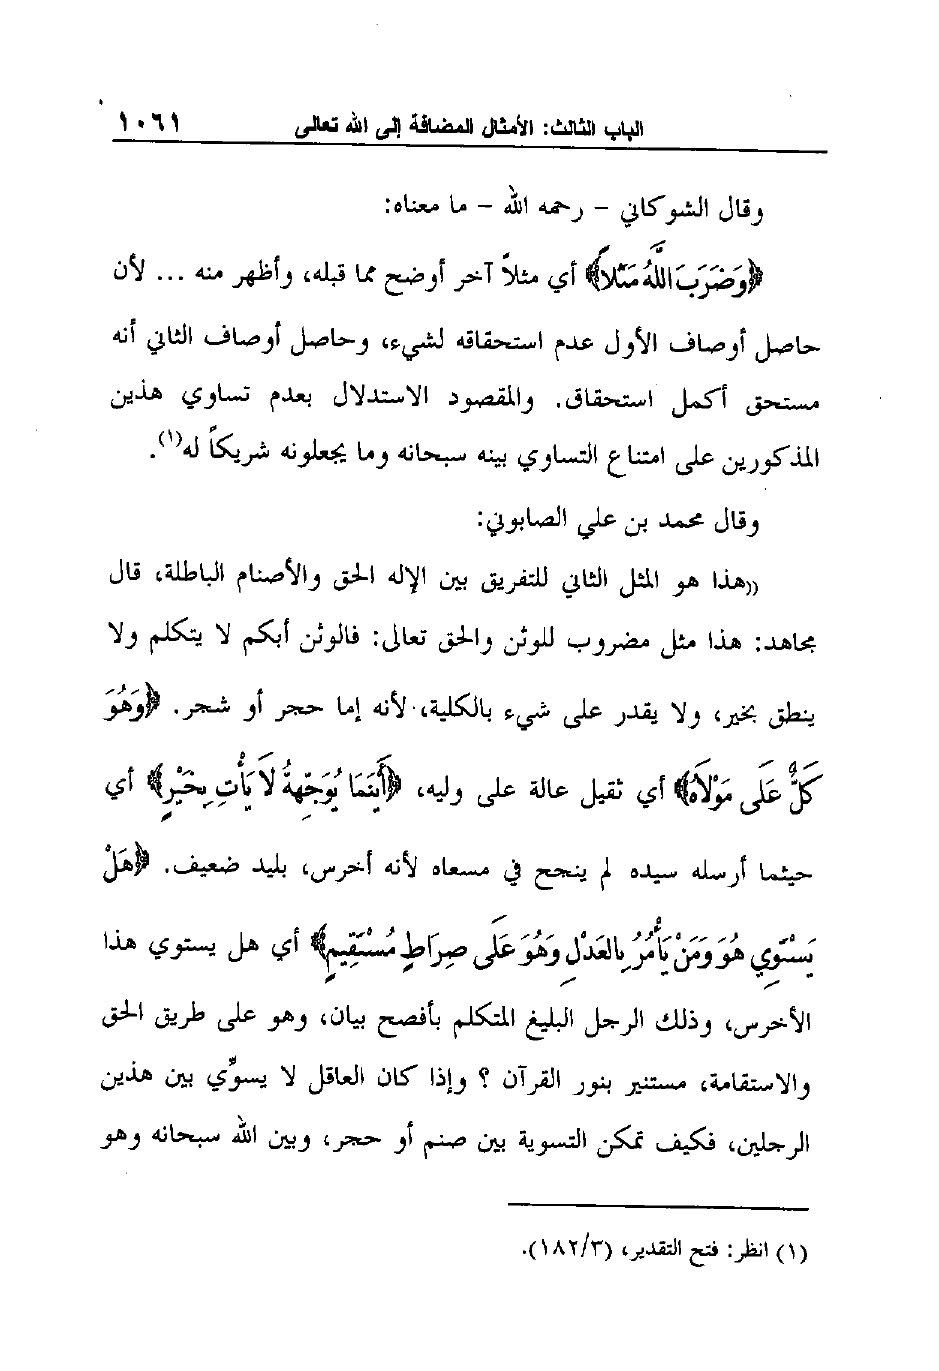 الباب الثالث: الأمثال المضافة إلى الله تعالى ١٠٦١
وقال الشوكاني – رحمه الله – ما معناه:
﴿وَضَرَبَ اللَّهُ مَثَلاً﴾ أي مثلاً آخر أوضح مما قبله، وأظهر منه ... لأن
حاصل أوصاف الأول عدم استحقاقه لشيء، وحاصل أوصاف الثاني أنه
مستحق أكمل استحقاق. والمقصود الاستدلال بعدم تساوي هذين
المذكورين على امتناع التساوي بينه سبحانه وما يجعلونه شريكاً له(١).
وقال محمد بن علي الصابوني:
((هذا هو المثل الثاني للتفريق بين الإله الحق والأصنام الباطلة، قال
مجاهد: هذا مثل مضروب للوثن والحق تعالى: فالوثن أبكم لا يتكلم ولا
ينطق بخير، ولا يقدر على شيء بالكلية، لأنه إما حجر أو شجر. ﴿وَهُوَ
كَلٌّ عَلَى مَوْلَاهُ﴾ أي ثقيل عالة على وليه، ﴿أَيْنَمَا يُوَجِّههُّ لَا يَأْتِ بِخَيْرٍ﴾ أي
حيثما أرسله سيده لم ينجح في مسعاه لأنه أخرس، بليد ضعيف. ﴿هَلْ
يَسْتَوِي هُوَ وَمَنْ يَأْمُرُ بِالعَدْلِ وَهُوَ عَلَى صِرَاطٍ مُسْتَقِيمٍ﴾ أي هل يستوي هذا
الأخرس، وذلك الرجل البليغ المتكلم بأفصح بيان، وهو على طريق الحق
والاستقامة، مستنير بنور القرآن ؟ وإذا كان العاقل لا يسوِّي بين هذين
الرجلين، فكيف تمكن التسوية بين صنم أو حجر، وبين الله سبحانه وهو
(١) انظر: فتح التقدير، (١٨٢/٣).